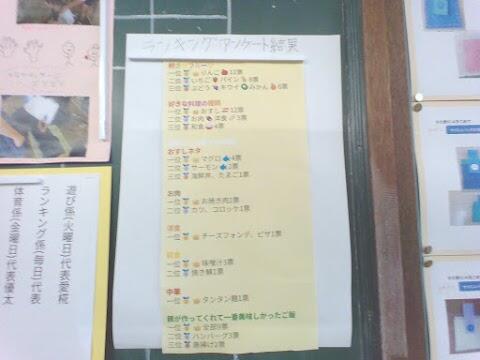 ランキングアンケート結果
好きなフルーツ
一位 りんご 11票
二位 いちご パイン 8票
三位 ぶどう キウイ みかん 6票
好きな料理の種類
一位 おすし 12票
二位 お肉 洋食 3票
三位 和食 4票
おすしネタ
一位 マグロ 4票
二位 サーモン 2票
三位 海鮮丼、たまご1票
お肉
一位 お焼き肉2票
二位 カツ、コロッケ1票
洋食
一位 チーズフォンデ、ピザ1票
和食
一位 味噌汁3票
二位 焼き鯖1票
中華
一位 タンタン麺1票
親が作ってくれて一番美味しかったご飯
一位 全部9票
二位 ハンバーグ3票
三位 唐揚げ2票
遊び係(火曜日)代表愛椛
ランキング係(毎日)代表
体育係(金曜日)代表優太